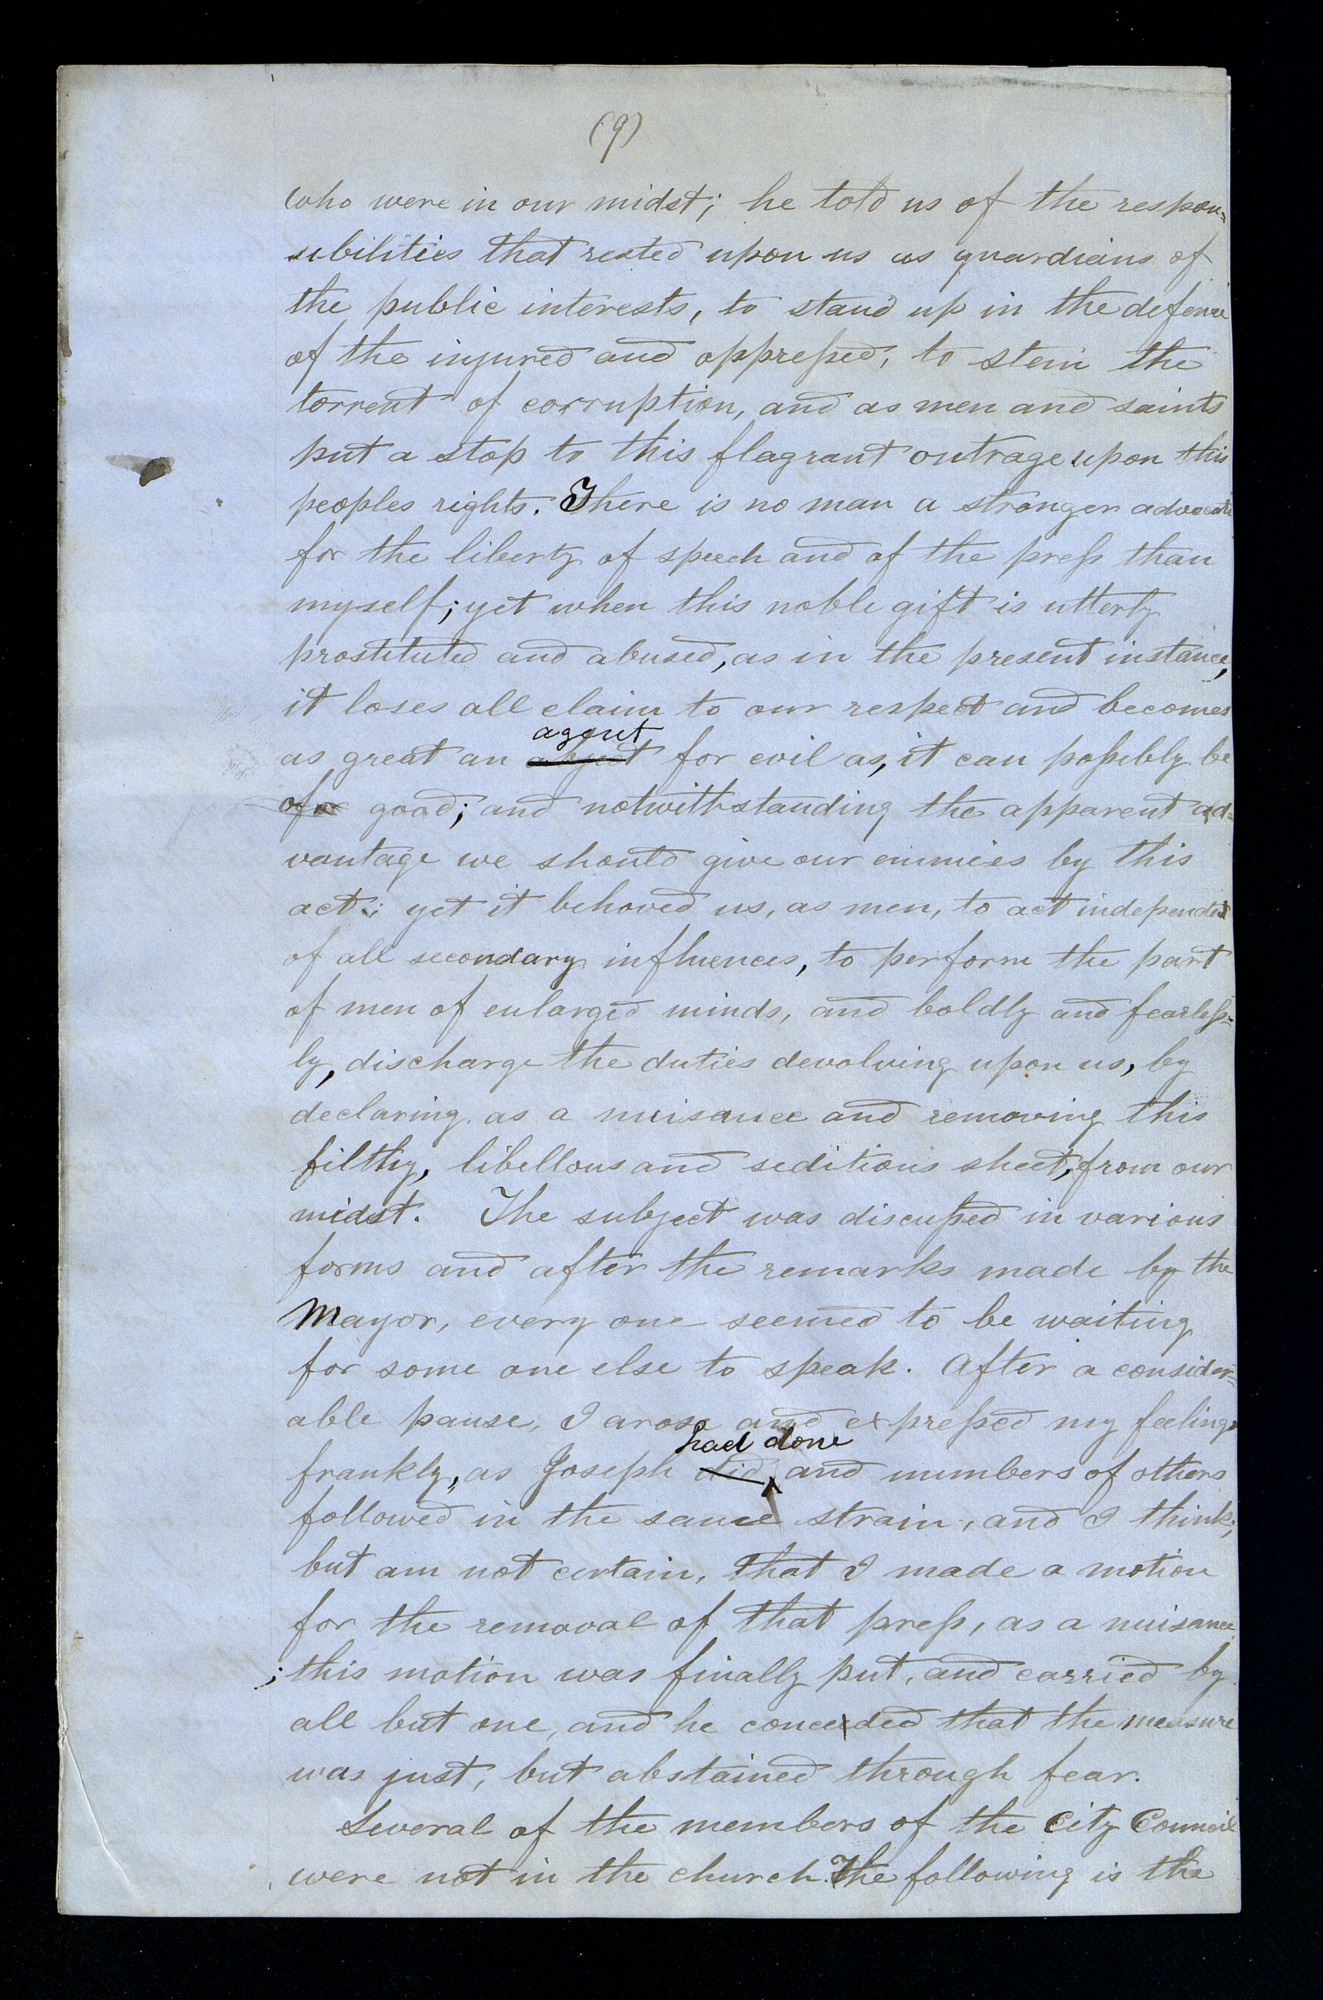 (9)
who were in our midst; he told us of the respon=
sibilities that rested upon us as guardians of
the public interests, to stand up in the defence
of the injured and oppressed, to stem the
torrent of corruption, and as men and saints
put a stop to this flagrant outrage upon this
peoples rights. There is no man a stronger advocate
for the liberty of speech and of the press than
myself; yet when this noble gift is utterly
prostituted and abused, as in the present instance,
it loses all claim to our respect and becomes
agent
as great an object for evil as, it can possibly be
for good; and notwithstanding the apparent ad=
vantage we should give our enimies by this
act; yet it behoved us, as men, to act independent
of all secondary influences, to perform the part
of men of enlarged minds, and boldly and fearless=
ly, discharge the duties devolving upon us, by
declaring as a nuisance and removing this
filthy, libellous and seditious sheet, from our
midst. The subject was discussed in various
forms and after the remarks made by the
Mayor, every one seemed to be waiting
for some one else to speak. After a consider=
able pause, I arose and expressed my feelings
had done
frankly, as Joseph did, and numbers of others
followed in the same strain, and I think,
but am not certain, that I made a motion
for the removal of that press, as a nuisance
; this motion was finally put, and carried by
all but one, and he conceded that the measure
was just, but abstained through fear.
Several of the members of the City Council
were not in the church. The following is the